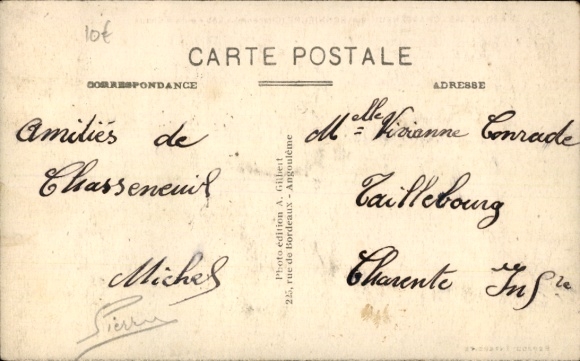 10€
CARTE POSTALE
CORRESPONDANCE
ADRESSE
Amitiés de
Chasseneuil
Michel
Pierre
Photo édition A. Gilbert
225, rue de Bordeaux - Angoulême
Melle Vivianne Conrade
Taillebourg
Charente Infre